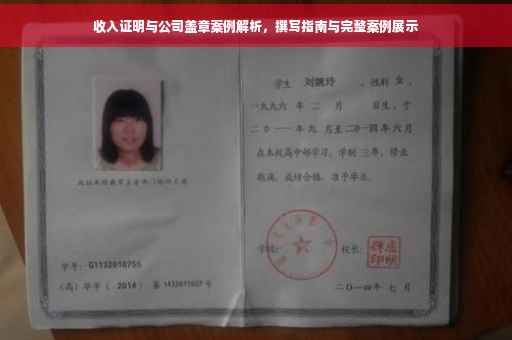 收入证明与公司盖章案例解析，撰写指南与完整案例展示
学生 刘婉玲 ，性别 女 ，
一九九六 年 二 月 日生，于
二〇一一年九 月至二〇一四年六月
在本校高中部学习，学制 三年，修业
期满，成绩合格，准予毕业。
学校： 校长：
学号： G1132010755
（高）毕字（ 2014 ）第 1432011027 号
二〇一四年 七 月